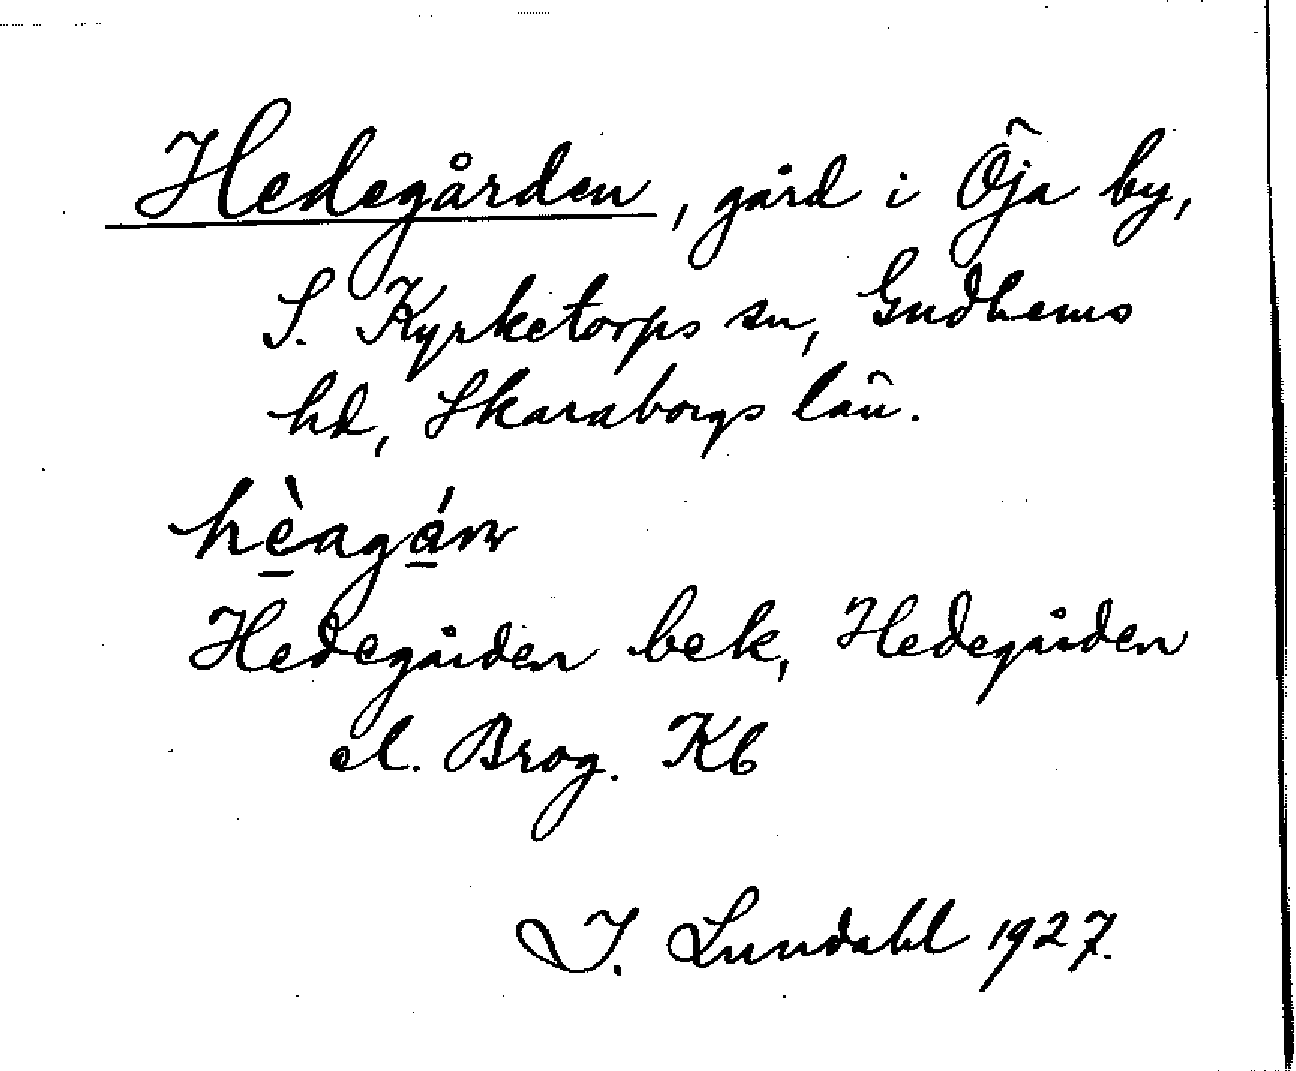 Hedegården, gård i Öja by,
S. Kyrketorps sn, Gudhems
hd, Skaraborgs län.
hèagárn
Hedegården bek, Hedegården
el. Brog. Kb
I. Lundahl 1927.